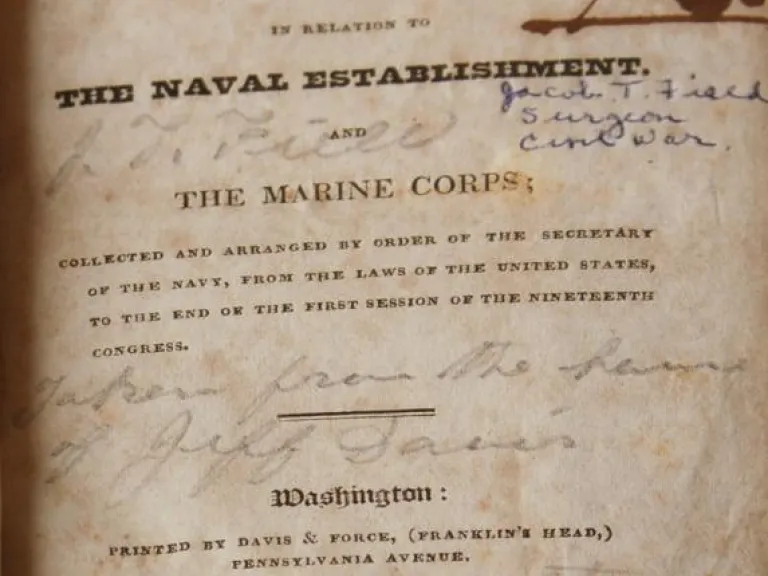 IN RELATION TO
THE NAVAL ESTABLISHMENT.
Jacob. T. Field
Surgeon
Civil War.
J. T. Field
AND
THE MARINE CORPS;
COLLECTED AND ARRANGED BY ORDER OF THE SECRETARY
OF THE NAVY, FROM THE LAWS OF THE UNITED STATES,
TO THE END OF THE FIRST SESSION OF THE NINETEENTH
CONGRESS.
Taken from the
of Jeff Davis
Washington:
PRINTED BY DAVIS & FORCE, (FRANKLIN'S HEAD,)
PENNSYLVANIA AVENUE.